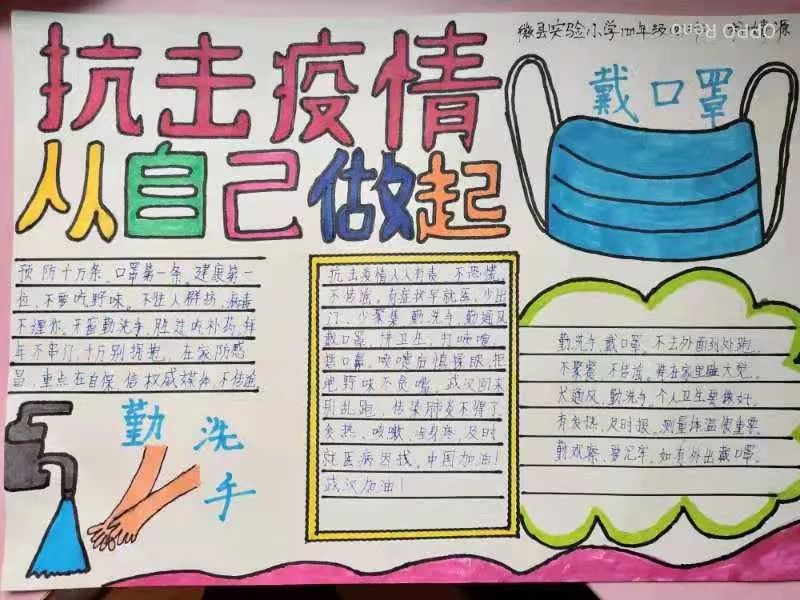 徽县实验小学四年级
OPPO Reno
抗击疫情
从自己做起
戴口罩
预防千万条,口罩第一条。健康第一
位,不要吃野味。不往人群挤,病毒
不理你。不窗勤洗手,胜过吃补药,拜
年不串门,千万别拥抱。在家防感
冒,重点在自保,信权威媒体,不传谣
勤洗手
抗击疫情人人有责,不恐慌,
不传谣。有症状早就医,少出
门,少聚集,勤洗手,勤通风
戴口罩,讲卫生,打喷嚏,
捂口鼻,咳嗽后
野味不食嘴,武汉回来
别乱跑,传染肺炎不得了,
发热、咳嗽,及时
就医病因找,中国加油!
武汉加油!
勤洗手,戴口罩,不去外面到处跑,
不聚会,不传谣,待在家里睡大觉。
大通风,勤洗手,个人卫生要做好。
有发热,及时报,测量体温很重要。
勤观察,要冷静,如有外出戴口罩。